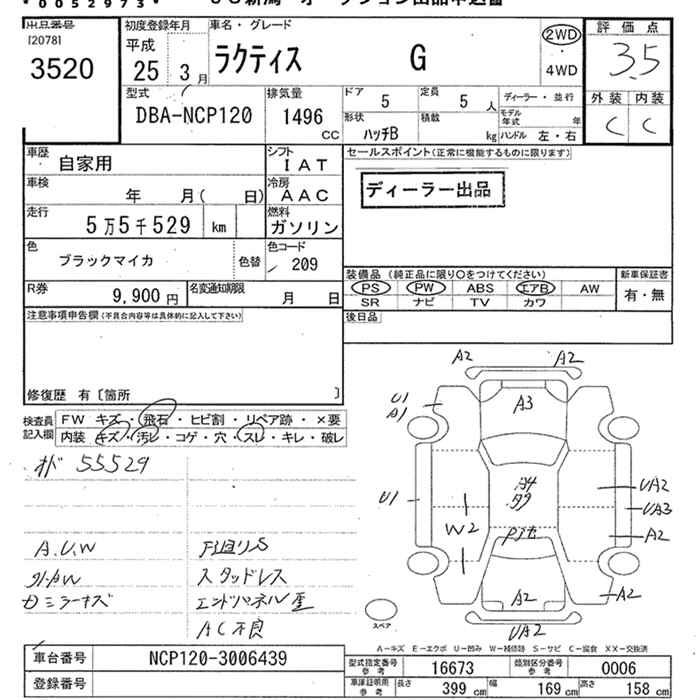 *0052973*
出品番号 初度登録年月 車名・グレード 2WD 評価点
120781
3520 平成 25 3月 ラクティス G 4WD 3.5
型式 排気量 ドア 定員 ディーラー・並行 外装 内装
DBA-NCP120 1496 CC 5 5人 モデル年式 年 C C
形状 積載
ハッチB kg ハンドル 左・右
車歴 自家用 シフト IAT セールスポイント(正常に機能するものに限ります)
車検 年 月( 日) 冷房 AAC ディーラー出品
走行 5万5千529 km 燃料 ガソリン
色 ブラックマイカ 色替 色コード 209
装備品(純正品に限り○をつけてください) 新車保証書
R券 9,900円 名変通知期限 月 日 PS PW ABS エアB AW 有・無
SR ナビ TV カワ
注意事項申告欄(不具合内容等は具体的に記入して下さい) 後日品
修復歴 有〔箇所 〕
検査員記入欄 FW キズ・飛石・ヒビ割・リペア跡・×要
内装・キズ・汚レ・コゲ・穴・スレ・キレ・破レ
オド 55529
A.U.W 下廻りS
スタッドレス
ミラーキズ エンドパネル歪
AC不良
A2 A2
U1
A1 A3
U1 A4 UA2
W2 UA3
A2
A2 A2
UA2
スペア
A-キズ E-エクボ U-凹み W-補修跡 S-サビ C-腐食 XX-交換済
車台番号 NCP120-3006439 型式指定番号 参考 16673 類別区分番号 参考 0006
登録番号 車庫証明用 参考 長さ 399cm 幅 169cm 高さ 158cm